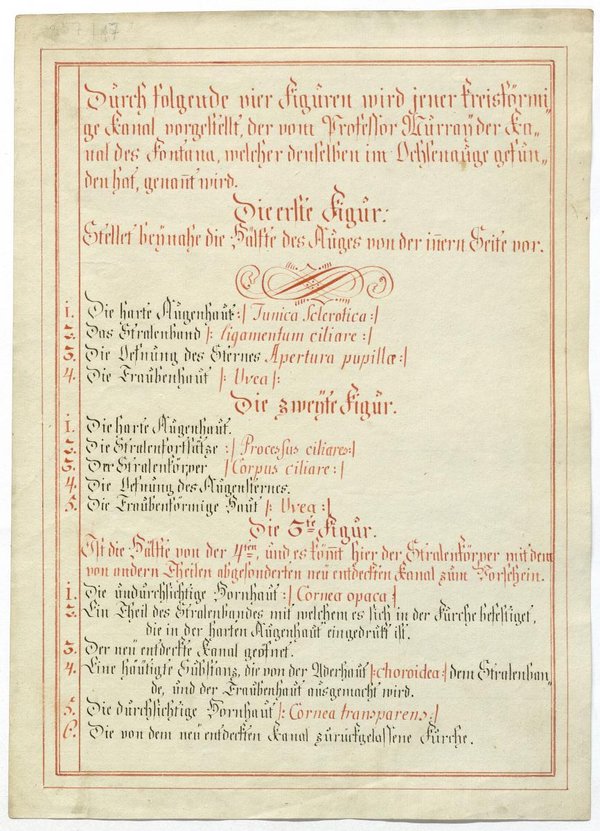 Durch folgende vier Figuren wird jener kreisförmi„
ge Kanal vorgestellt, der vom Professor Murray der Ka„
nal des Fontana, welcher denselben im Ochsenauge gefun„
den hat, genant wird.
Die erste Figur:
Stellet beynahe die Hälfte des Auges von der inern Seite vor.
1. Die harte Augenhaut :/ Tunica Sclerotica :/
2. Das Stralenband /: ligamentum ciliare :/
3. Die Oefnung des Sternes Apertura pupillæ :/
4. Die Traubenhaut /: Uvea /:
Die zweyte Figur.
1. Die harte Augenhaut.
2. Die Stralenfortsätze :/ Processus ciliares :/
3. Der Stralenkörper /Corpus ciliare :/
4. Die Oefnung des Augensternes.
5. Die Traubenförmige Haut /: Uvea :/
Die 3te Figur.
Ist die Hälfte von der 4ten, und es kömt hier der Stralenkörper mit dem
von andern Theilen abgesonderten neu entdeckten Kanal zum Vorschein.
1. Die undurchsichtige Hornhaut :/ Cornea opaca :/
2. Ein Theil des Stralenbandes mit welchem es sich in der Furche befestiget,
die in der harten Augenhaut eingedrukt ist.
3. Der neu entdeckte Kanal geöfnet.
4. Eine häutigte Substanz, die von der Aderhaut /: choroidea :/ dem Stralenban„
de, und der Traubenhaut ausgemacht wird.
5. Die durchsichtige Hornhaut /: Cornea transparens :/
6. Die von dem neu entdeckten Kanal zurückgelassene Furche.